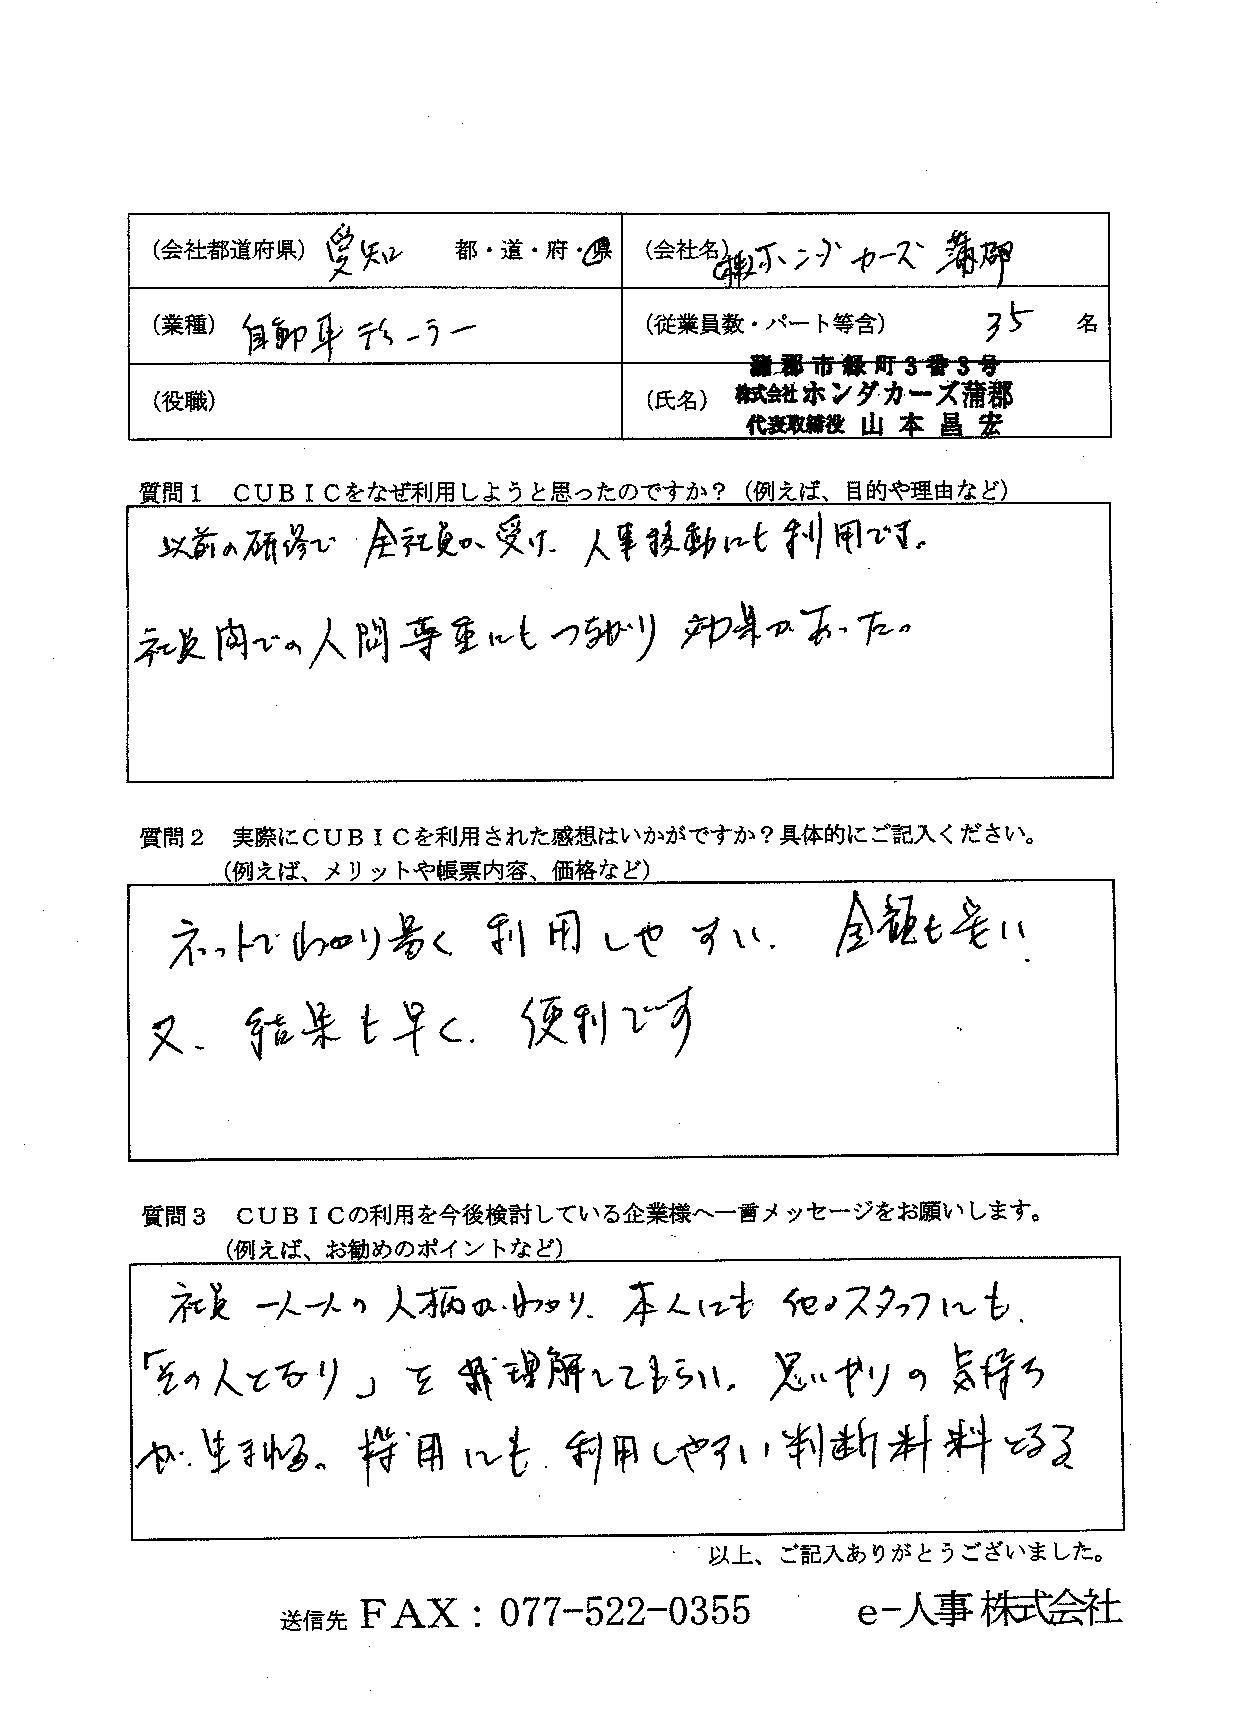 (会社都道府県) 愛知 都・道・府・県
(会社名) (株)ホンダカーズ蒲郡
(業種) 自動車ディーラー
(従業員数・パート等含) 35 名
(役職)
(氏名) 蒲郡市緑町3番3号
株式会社ホンダカーズ蒲郡
代表取締役 山本昌宏
質問1 CUBICをなぜ利用しようと思ったのですか?(例えば、目的や理由など)
以前の研修で 全社員が受け、人事移動にも利用です。
社員間での人間尊重にもつながり 効果があった。
質問2 実際にCUBICを利用された感想はいかがですか?具体的にご記入ください。
(例えば、メリットや帳票内容、価格など)
ネットでわかり易く 利用しやすい、 金額も安い、
又、結果も早く、便利です
質問3 CUBICの利用を今後検討している企業様へ一言メッセージをお願いします。
(例えば、お勧めのポイントなど)
社員 一人一人の人柄がわかり、本人にも 他のスタッフにも、
「その人となり」を 理解してもらい、思いやりの気持ち
が生まれる。採用にも利用しやすい判断材料となる
以上、ご記入ありがとうございました。
送信先 FAX:077-522-0355 e-人事株式会社